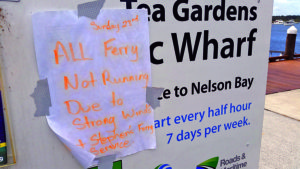 Sunday, 25th
ALL Ferry
Not Running
Due to
Strong Winds
+ Stephens Ferry
Services
Tea Gardens
c Wharf
e to Nelson Bay
art every half hour
7 days per week.
Roads &
Maritime